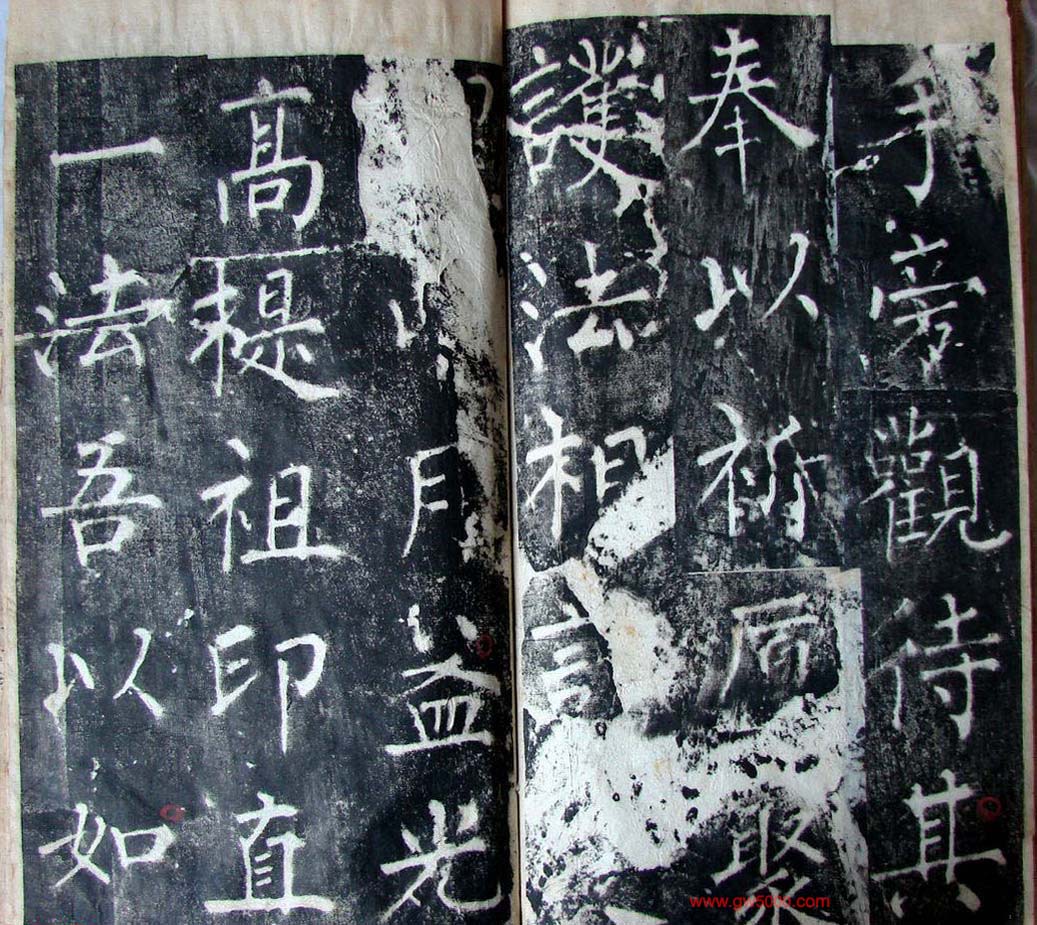 手旁觀待其
奉以祈屆聚
護法相言
月益光
高提祖印直
一法吾以如
www.gw5000.com